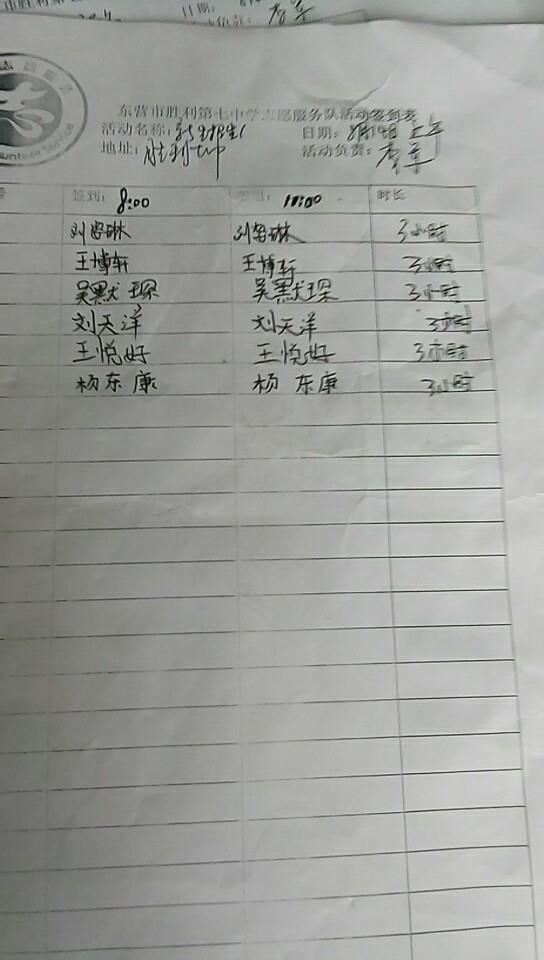 日期:
活动负责:
志愿服务
Volunteer Service
东营市胜利第七中学志愿服务队活动签到表
活动名称: 新生报到 日期: 上午
地址: 胜利七中 活动负责:
签到: 8:00 签退: 11:00 时长
刘容琳 刘容琳 3小时
王博轩 王博轩 3小时
吴默琛 吴默琛 3小时
刘天洋 刘天洋 3小时
王悦好 王悦好 3小时
杨东康 杨东康 3小时